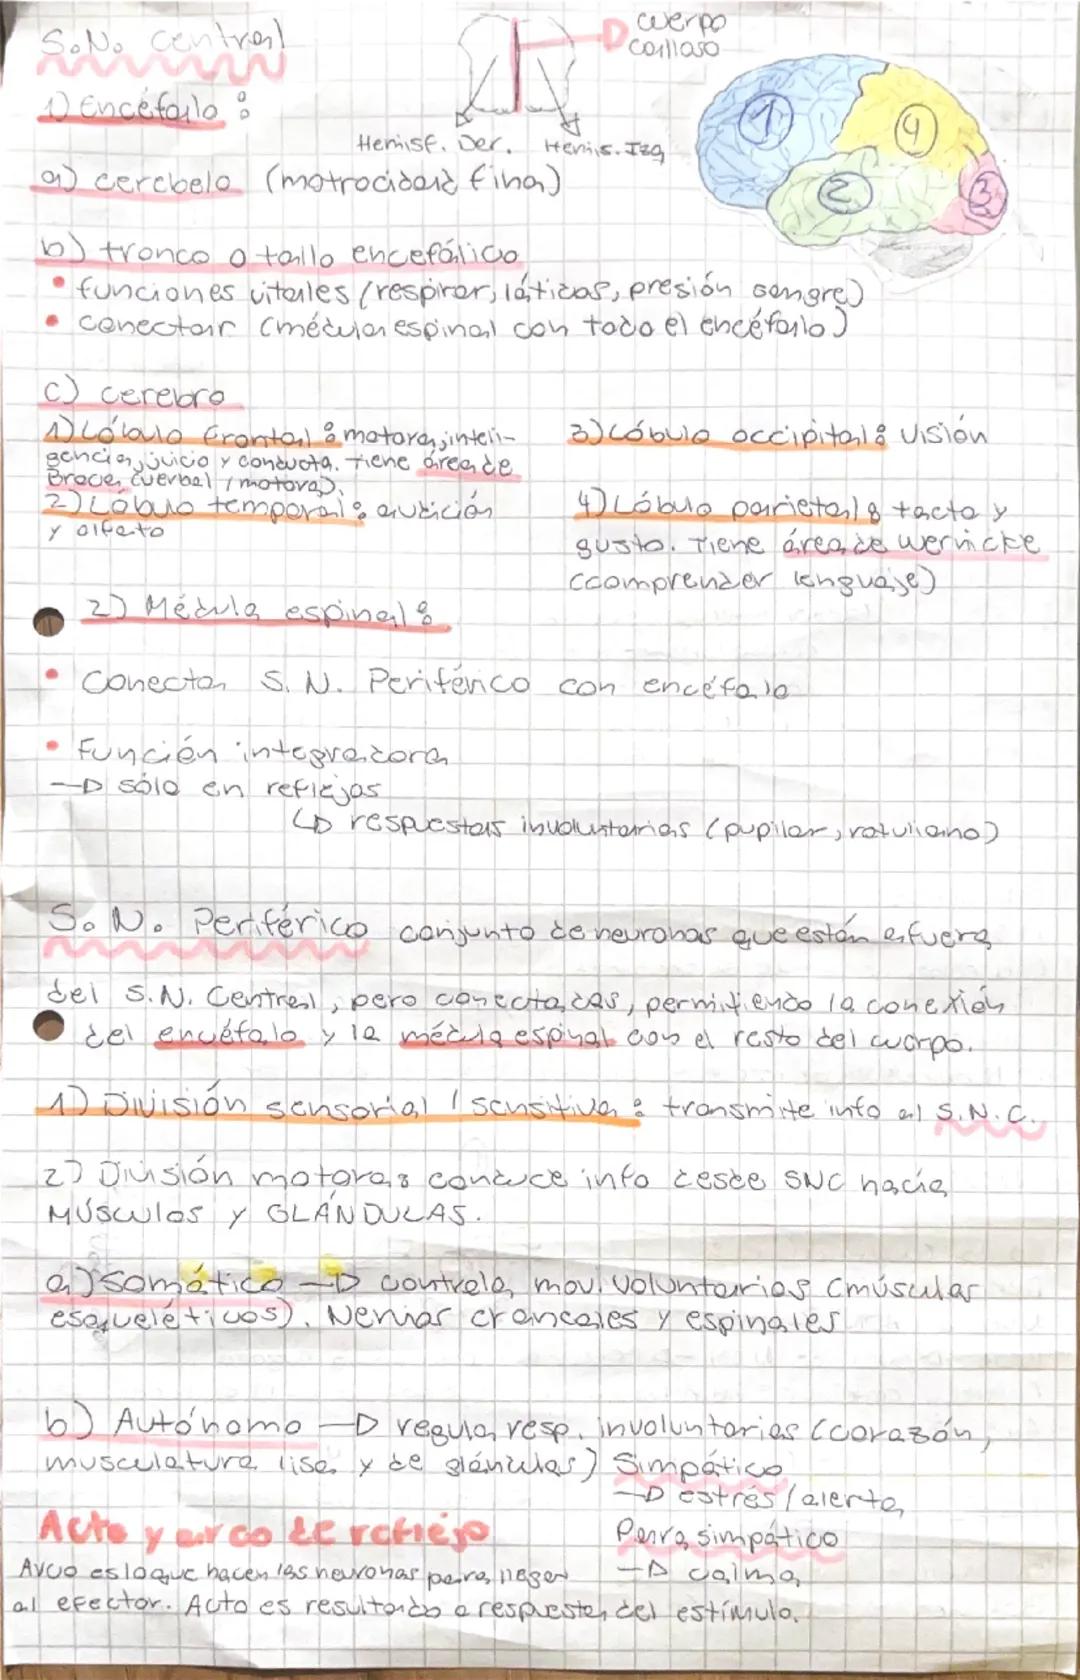 S.N. central
cuerpo
calloso
1) Encéfalo:
Hemisf. Der. Hemis. Izq
1 4 2 3
a) cerebelo (motrocidad fina)
b) tronco o tallo encefálico
• funciones vitales (respirar, láticas, presión sangre)
• conectar (médula espinal con todo el encéfalo)
c) cerebro
1) Lóbulo frontal: motora, inteli-
gencia, juicio y conducta. Tiene área de
Broca (verbal / motora).
2) Lóbulo temporal: audición
y olfato
3) Lóbulo occipital: visión
4) Lóbulo parietal: tacto y
gusto. Tiene área de wernicke
(comprender lenguaje)
2) Médula espinal:
• Conectar S.N. Periférico con encéfalo
• Función integradora
→ sólo en reflejos
↳ respuestas involuntarias (pupilar, rotuliano)
S.N. Periférico conjunto de neuronas que están afuera
del S.N. Central, pero conectadas, permitiendo la conexión
del encéfalo y la médula espinal con el resto del cuerpo.
1) División sensorial / sensitiva: transmite info al S.N.C.
2) División motora: conduce info desde SNC hacia
MÚSCULOS y GLÁNDULAS.
a) Somático → controla mov. voluntarios (músculos
esqueléticos). Nervios craneales y espinales
b) Autónomo → regula resp. involuntarias (corazón,
musculatura lisa y de glándulas) Simpático
→ estrés / alerta
Parasimpático
→ calma
Acto y arco de reflejo
Arco es lo que hacen las neuronas para llegar
al efector. Acto es resultado o respuesta del estímulo.